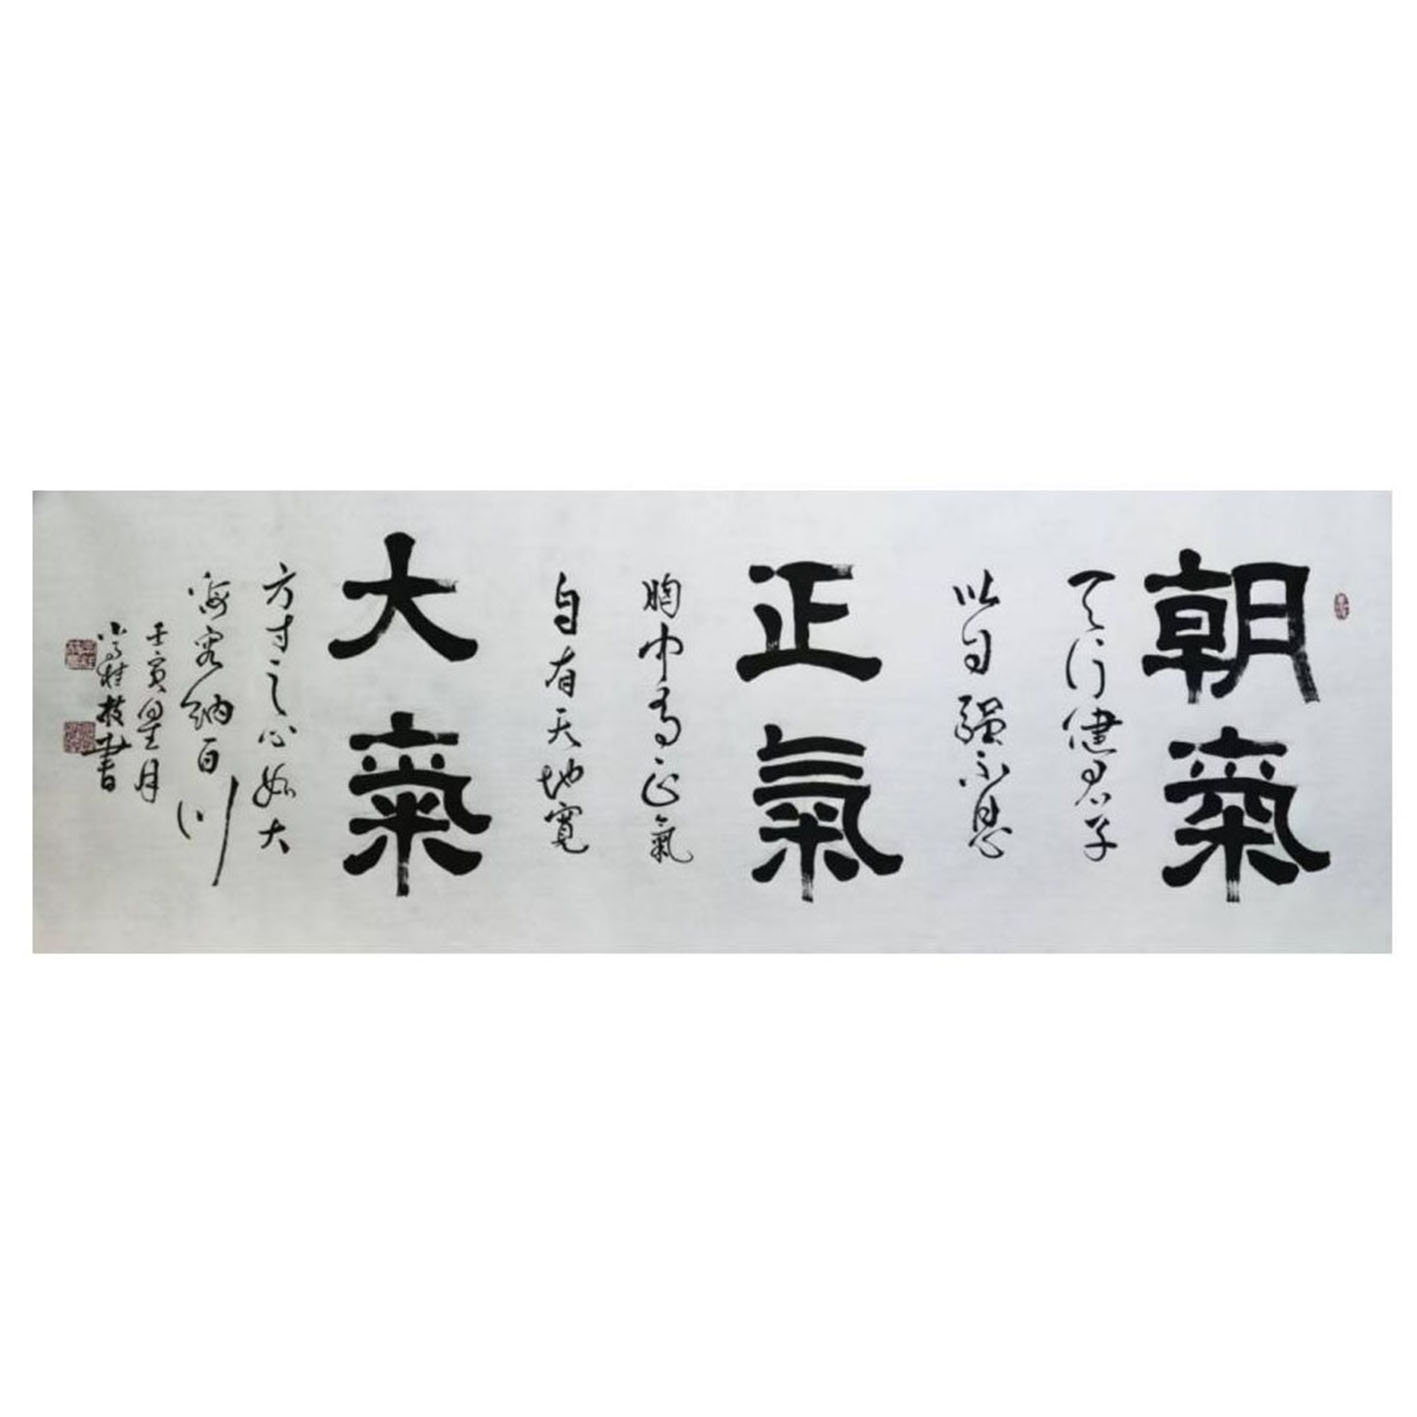 朝氣
天行健君子
以自強不息
正氣
胸中有正氣
自有天地寬
大氣
方寸之心如大
海容納百川
壬寅年 月
桂枝書